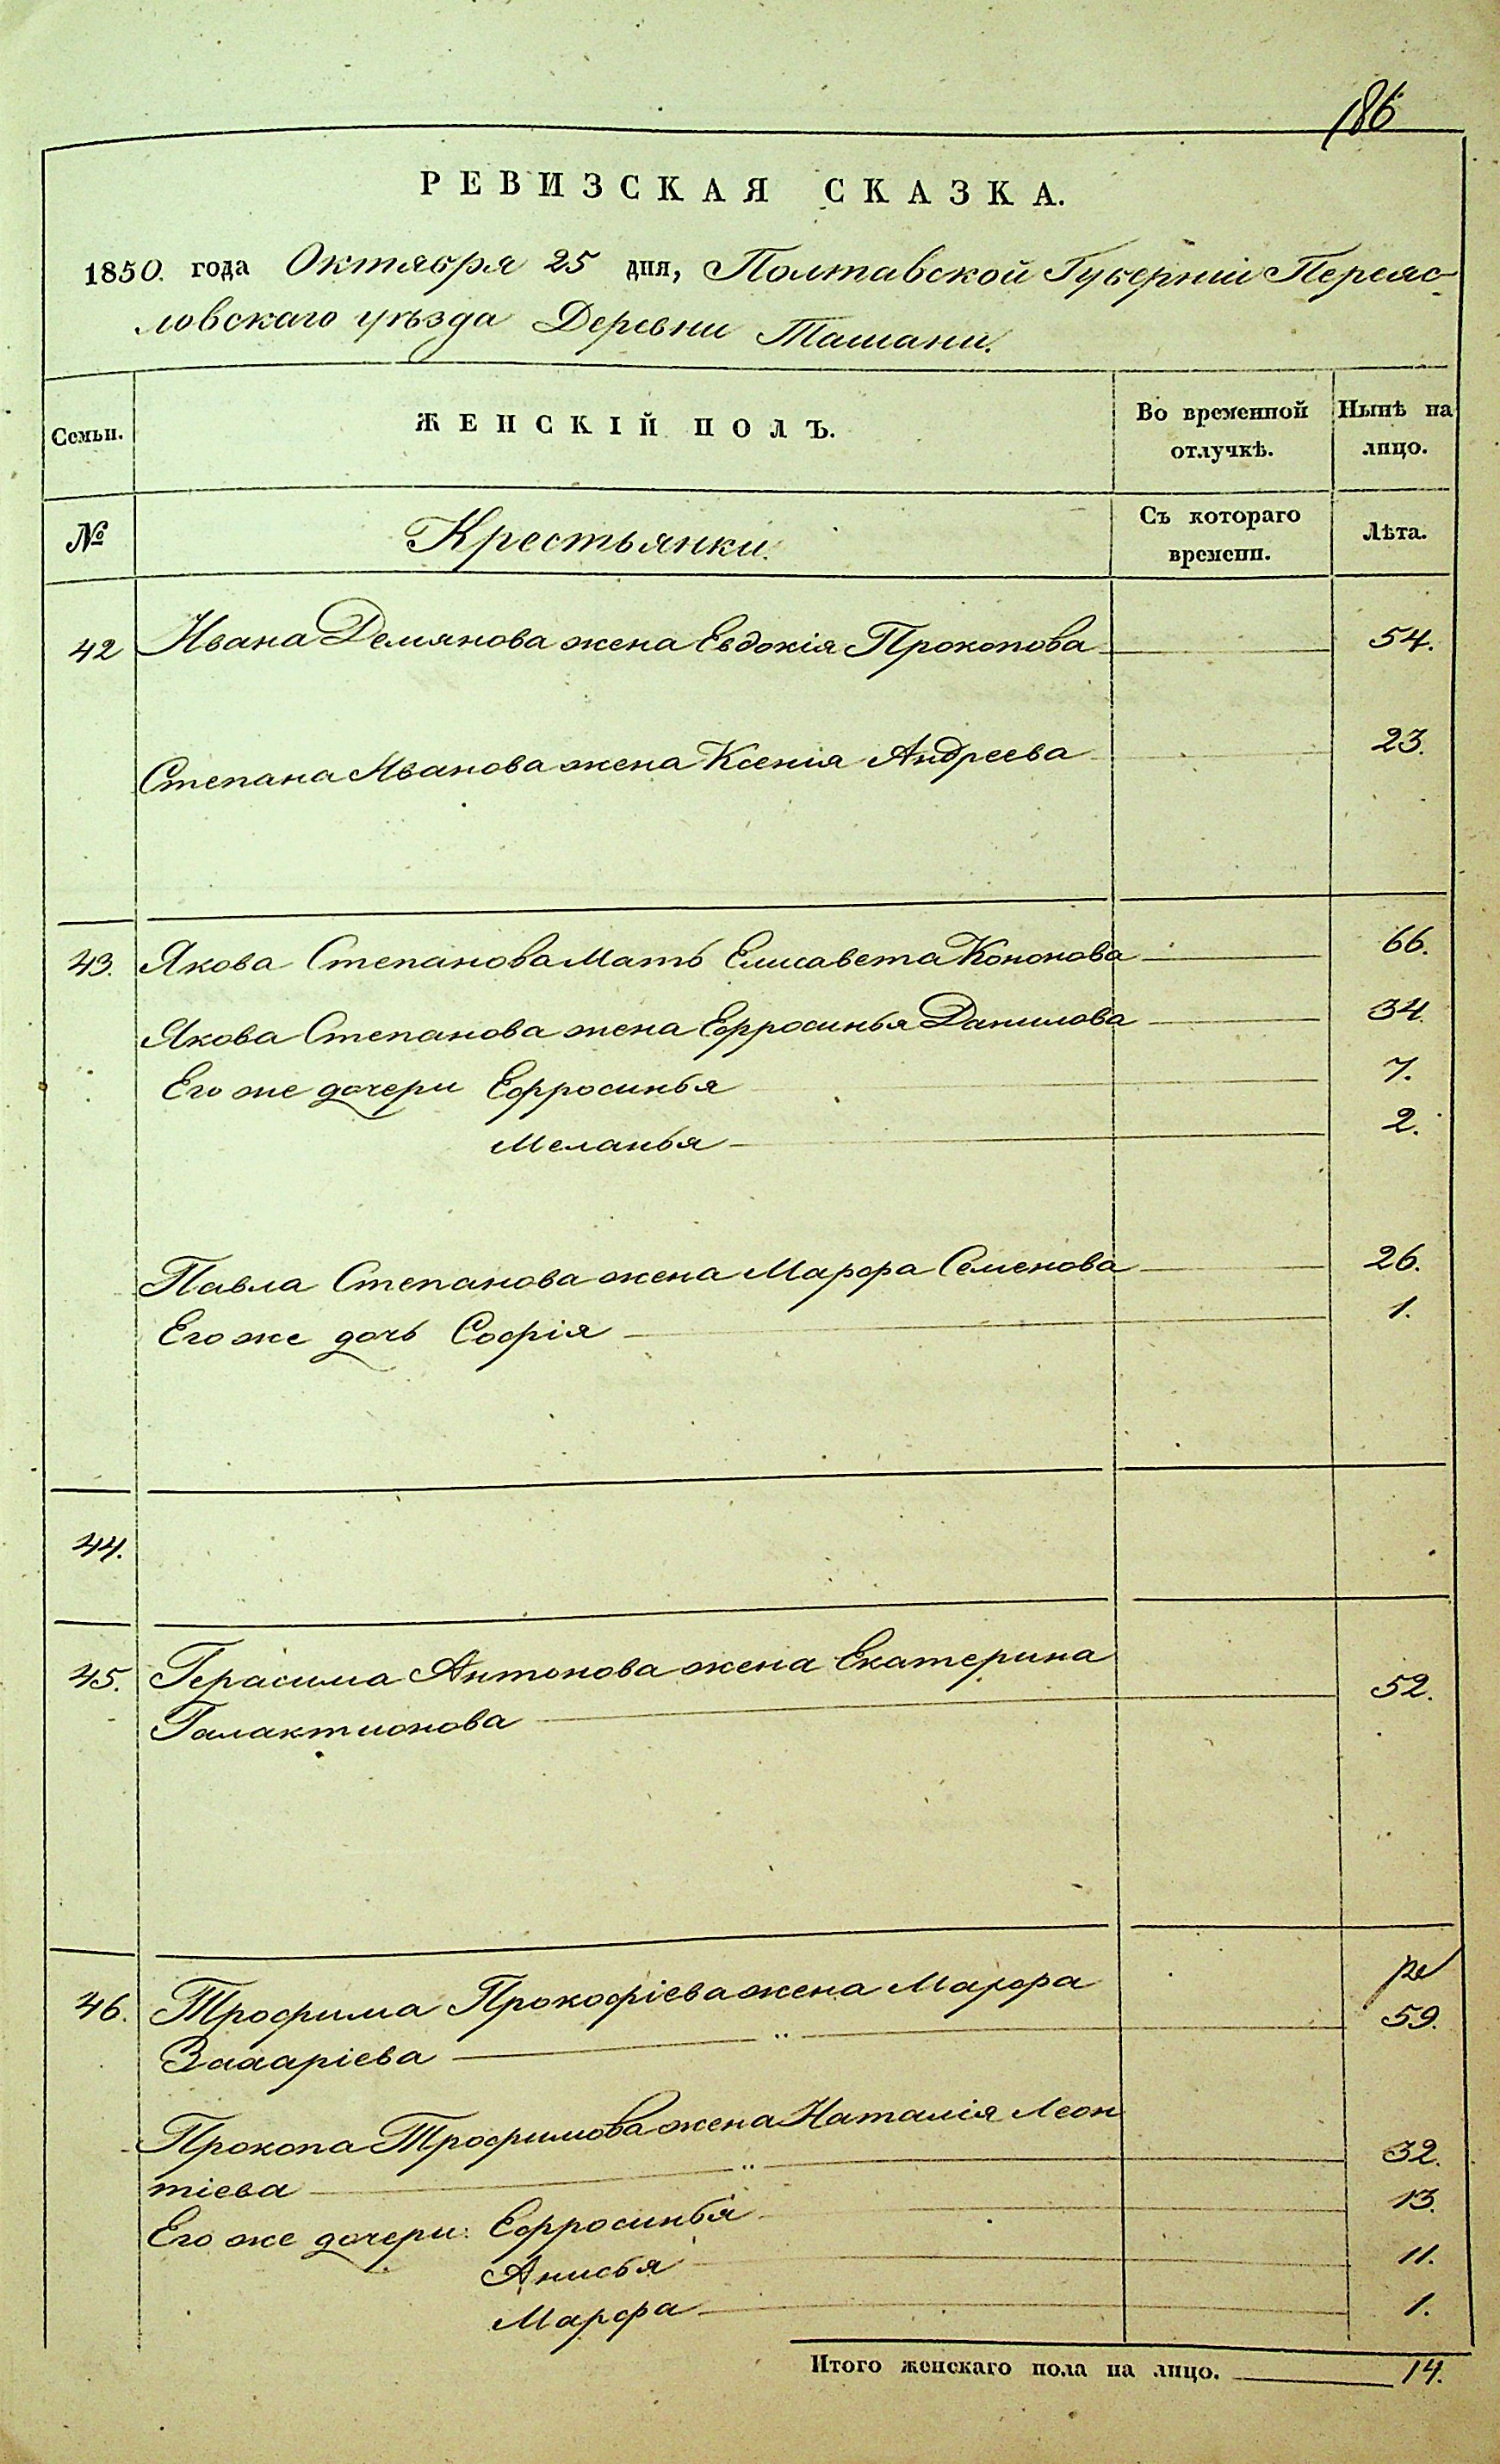 186
РЕВИЗСКАЯ СКАЗКА.
1850. года Октября 25 дня, Полтавской Губерніи Переяс-
ловскаго уѣзда Деревни Ташани.
Семьи. ЖЕНСКІЙ ПОЛЪ. Во временной отлучкѣ. Нынѣ на лицо.
№ Крестьянки. Съ котораго времени. Лѣта.
42 Ивана Демянова жена Евдокія Прокопова 54.
Степана Иванова жена Ксенія Андреева 23.
43. Якова Степанова Мать Елисавета Кононова 66.
Якова Степанова жена Ефросинья Данилова 34.
Его же дочери Ефросинья 7.
Меланья 2.
Павла Степанова жена Марфа Семенова 26.
Его же дочь Софія 1.
44.
45. Герасима Антонова жена Екатерина
Галактионова 52.
46. Трофима Прокофіева жена Марфа
Захаріева 59.
Прокопа Трофимова жена Наталія Леон
тіева 32.
Его же дочери: Ефросинья 13.
Анисья 11.
Марфа 1.
Итого женскаго пола на лицо. 14.